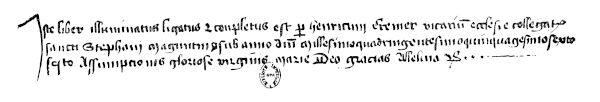 Iste liber illuminatus ligatus & completus est p henricum Cremer vicariū ecclesie collegat
sancti Stephani Maguntini sub anno dn̄i Millesimoquadringentesimoquinquagesimosexto
festo Assumptionis gloriose virginis Marie Deo gracias Alleluia